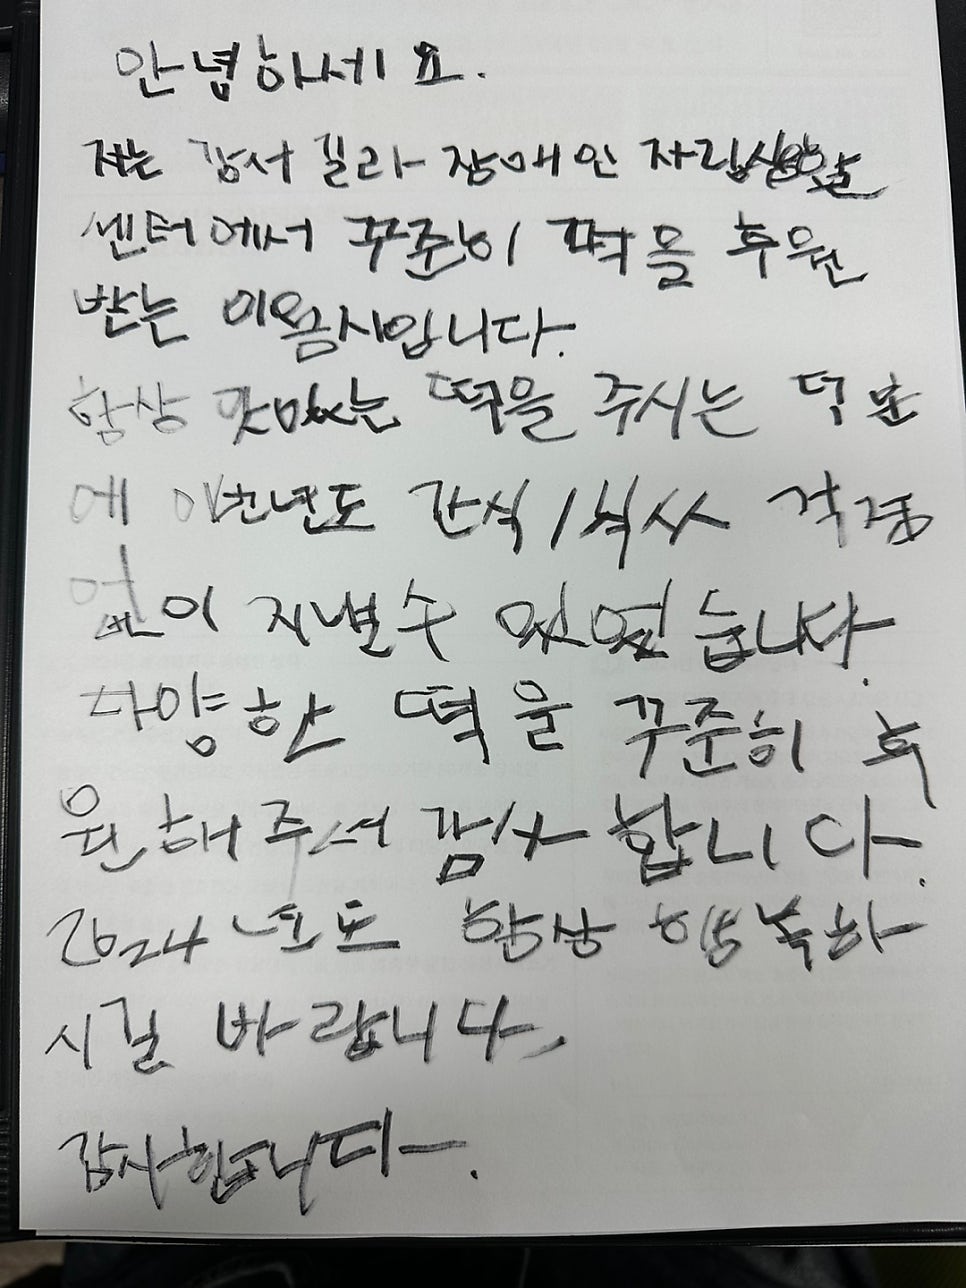 안녕하세요.
저는 강서 길라 장애인 자립생활
센터에서 꾸준히 떡을 후원
받는 이용자입니다.
항상 맛있는 떡을 주시는 덕분
에 이번년도 간식/식사 걱정
없이 지낼수 있었습니다.
다양한 떡을 꾸준히 후
원해주셔 감사합니다.
2024년도도 항상 행복하
시길 바랍니다.
감사합니다.